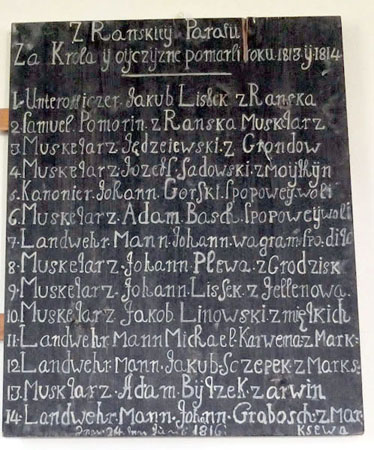 Z Ranskiey Parafii
Za Krola ÿ oyczyzne pomarli roku 1813 ÿ 1814
1. Unterofficzer Jakub Lissek z Ranska
2. Samuel Pomorin. z Ranska Muskełarz
3. Muskełarz Jędzeiewski. z Grondow
4. Muskełarz Jozeff. Sadowski. z Moÿtÿn
5. Kanonier. Johann Gorski. Spopoweÿ. woli
6. Muskełarz. Adam. Basch. Spopoweÿ woli
7. Landwehr. Mann. Johann. wagram.
8. Muskełarz. Johann Plewa. z Grodzisk
9. Muskełarz. Johann Lissek z Jellenowa.
10. Muskełarz. Jakob Linowski. z miętkich
11. Landwehr. Mann Michael. Karwena z Mark-
12. Landwehr. Mann. Jakub. Sczepek. z Marks-
13. Muskłarz. Adam. z arwin
14. Landwehr. Mann. Johann. Grabosch. z Mar-
24 Junii 1816. Ksewa